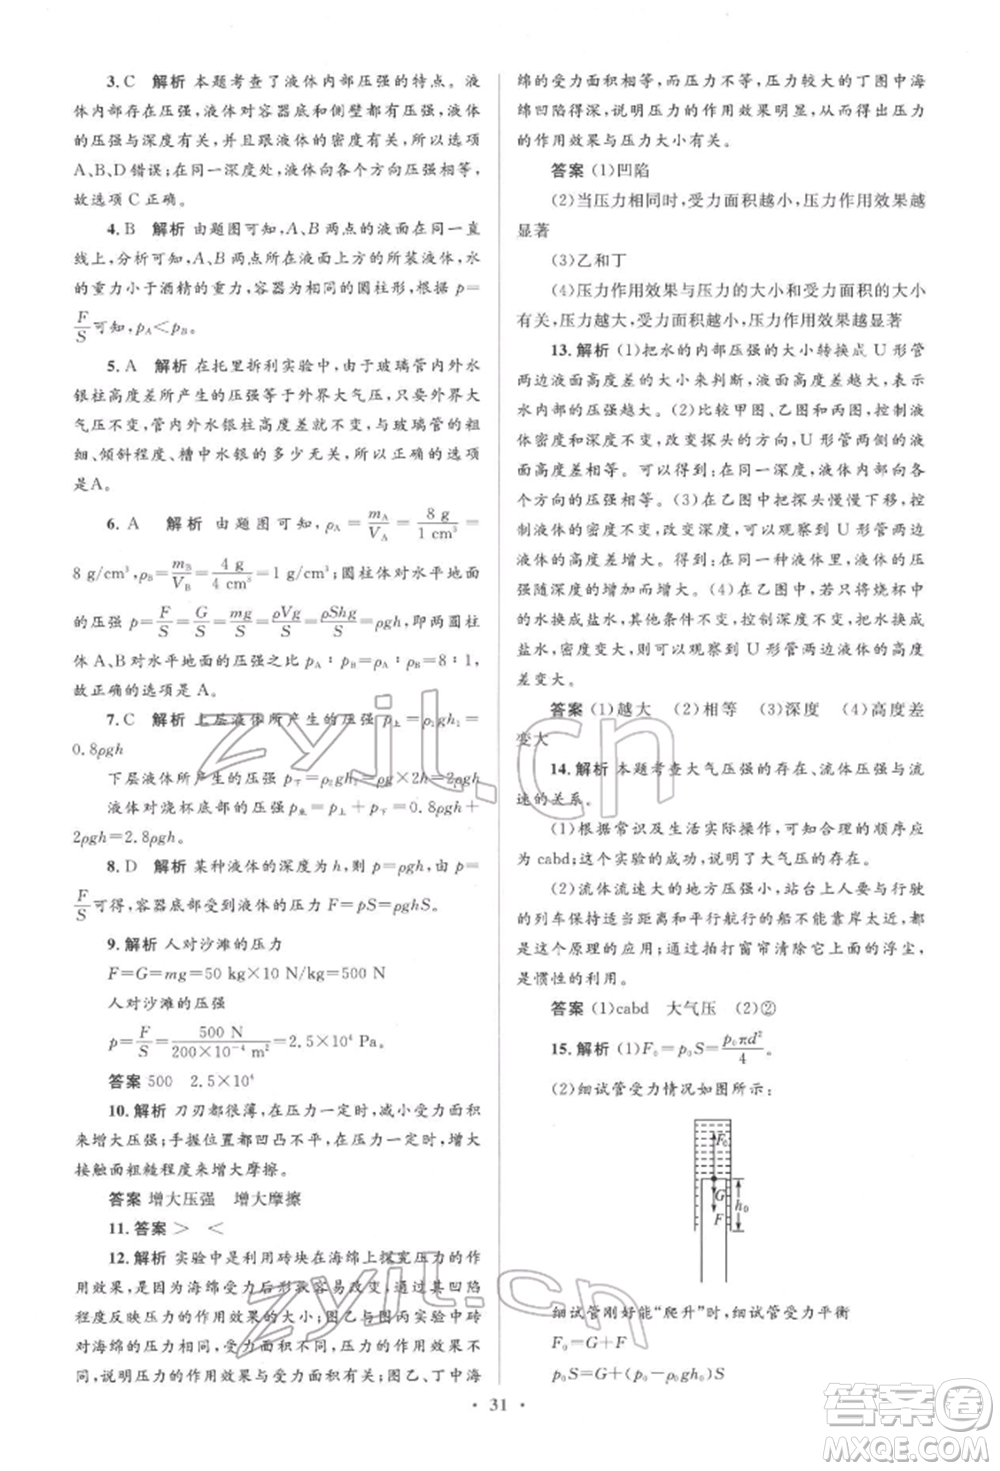 3.C 解析 本题考查了液体内部压强的特点。液
体内部存在压强,液体对容器底和侧壁都有压强,液体
的压强与深度有关,并且跟液体的密度有关,所以选项
A、B、D错误;在同一深度处,液体向各个方向压强相等,
故选项C正确。
4.B 解析 由题图可知,A、B两点的液面在同一直
线上,分析可知,A、B两点的液面上方的所装液体,水
的重力小于酒精的重力,容器为相同的圆柱形,根据 p=
F/S可知,pA<pB。
5.A 解析 在托里拆利实验中,由于玻璃管内外水
银柱高度差所产生的压强等于外界大气压,只要外界大
气压不变,管内外水银柱高度差就不变,与玻璃管的粗
细、倾斜程度、槽中水银的多少无关,所以此题的选项
是A。
6.A 解析 由题图可知,ρA=mA/VA=8 g/1 cm³=
8 g/cm³,ρB=mB/VB=4 g/4 cm³=1 g/cm³;圆柱体对水平地面
的压强 p=F/S=G/S=mg/S=ρVg/S=ρShg/S=ρgh,即两圆柱
体A、B对水平地面的压强之比 pA∶pB=ρA∶ρB=8∶1,
故正确的选项是A。
7.C 解析 上层液体所产生的压强 p上=ρ₁gh₁=
0.8ρgh
下层液体所产生的压强 p下=ρ₂gh₂=2ρgh
液体对烧杯底部的压强 p来=p上+p下=0.8ρgh+
2ρgh=2.8ρgh。
8.D 解析 某种液体的深度为h,则 p=ρgh,由 p=
F/S可得,容器底部受到液体的压力 F=pS=ρghS。
9.解析 人对沙滩的压力
F=G=mg=50 kg×10 N/kg=500 N
人对沙滩的压强
p=F/S=500 N/200×10⁻⁴ m²=2.5×10⁴ Pa。
答案 500 2.5×10⁴
10.解析 刀刃都很薄,在压力一定时,减小受力面积
来增大压强;手握位置都凹凸不平,在压力一定时,增大
接触面粗糙程度来增大摩擦。
答案 增大压强 增大摩擦
11.答案 > <
12.解析 实验中是利用砖块在海绵上探究压力的作
用效果,是因为海绵受力后形状容易改变,通过其凹陷
程度反映压力的作用效果的大小;图乙与图丙实验中砖
对海绵的压力相同,受力面积不同,它们的压力作用效
果不同,说明压力的作用效果与受力面积有关;图乙、丁中海
绵的受力面积相等,而压力不同,压力较大的丁图中海
绵凹陷得深,说明压力的作用效果明显,从而得出压力
的作用效果与压力大小有关。
答案 (1)凹陷
(2)当压力相同时,受力面积越小,压力作用效果越
显著
(3)乙和丁
(4)压力作用效果与压力的大小和受力面积的大小
有关,压力越大,受力面积越小,压力作用效果越显著
13.解析 (1)把水的内部压强的大小转换成U形管
两边液面高度差的大小来判断,液面高度差越大,表示
水内部的压强越大。(2)比较甲图、乙图和丙图,控制液
体密度和深度不变,改变探头的方向,U形管两侧的液
面高度差相等。可以得到:在同一深度,液体内部向各
个方向的压强相等。(3)在乙图中把探头慢慢下移,控
制液体的密度不变,改变深度,可以观察到U形管两边
液体的高度差变大。得到:在同一种液体里,液体的压
强随深度的增加而增大。(4)在乙图中,若只将烧杯中
的水换成盐水,其他条件不变,控制深度不变,水换成
盐水,密度变大,则可以观察到U形管两边液体的高度
差变大。
答案 (1)越大 (2)相等 (3)深度 (4)高度差
变大
14.解析 本题考查大气压强的存在、流体压强与流
速的关系。
(1)根据常识及生活实际操作,可知合理的顺序应
为cabd;这个实验的成功,说明了大气压的存在。
(2)流体流速大的地方压强小,站台上人要与行驶
的列车保持适当距离和平行航行的船不能靠岸太近,都
是这个原理的应用;通过拍打窗帘清除它上面的浮尘,
是惯性的利用。
答案 (1)cabd 大气压 (2)②
15.解析 (1)F₀=p₀S=p₀πd²/4。
(2)细试管受力情况如图所示:
F₀
G
F
h₀
细试管刚好能“爬升”时,细试管受力平衡
F₀=G+F
p₀S=G+(p₀-ρgh₀)S
• 31 •
zyjl.cn
zyjl.cn
答案圈
MXQE.COM